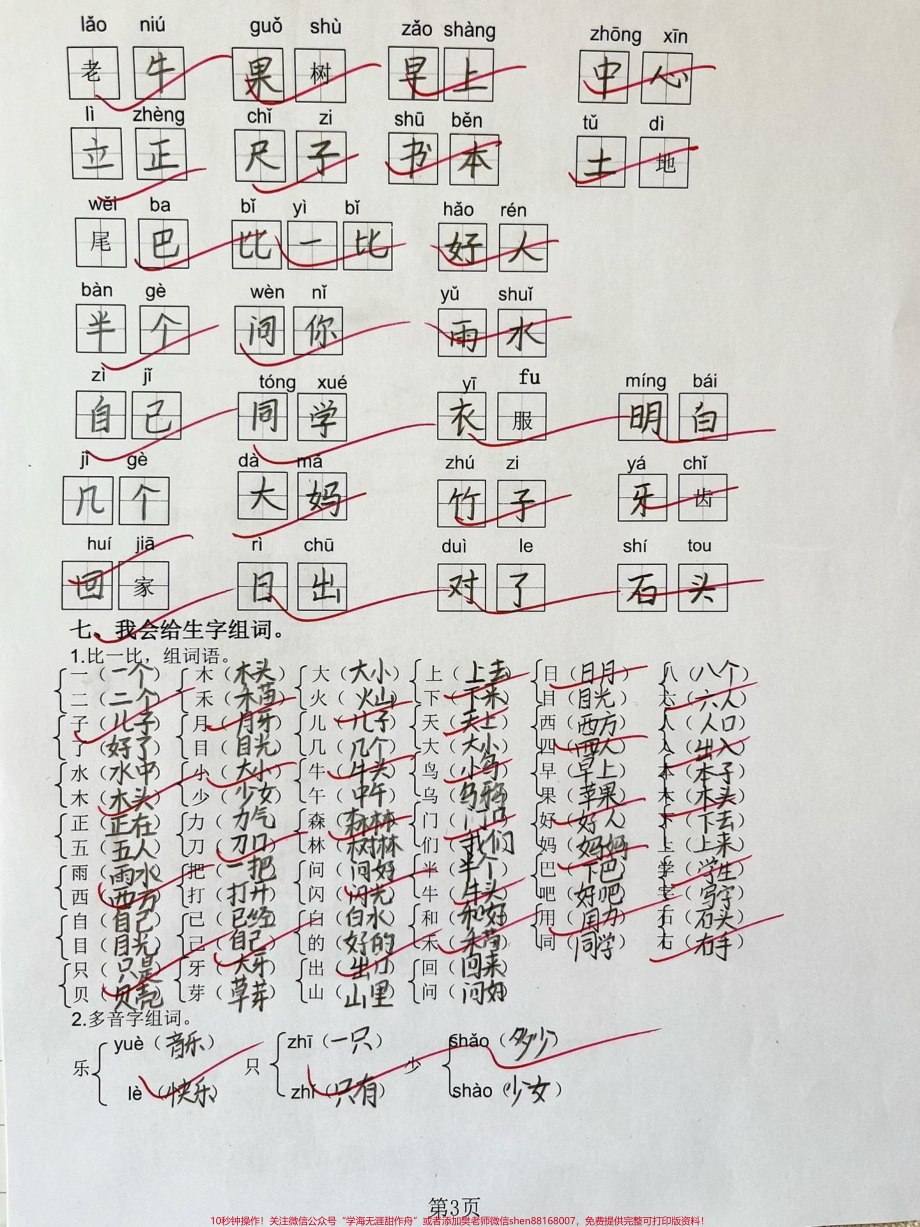 lǎo niú guǒ shù zǎo shàng zhōng xīn
老牛 果树 早上 中心
lì zhèng chǐ zi shū běn tǔ dì
立正 尺子 书本 土地
wěi ba bǐ yì bǐ hǎo rén
尾巴 比一比 好人
bàn gè wèn nǐ yǔ shuǐ
半个 问你 雨水
zì jǐ tóng xué yī fu míng bái
自己 同学 衣服 明白
jǐ gè dà mā zhú zi yá chǐ
几个 大妈 竹子 牙齿
huí jiā rì chū duì le shí tou
回家 日出 对了 石头
七、我会给生字组词。
1.比一比，组词语。
一（一个） 木（木头） 大（大小） 上（上去） 日（日月） 八（八个）
二（二个） 禾（禾苗） 火（火山） 下（下来） 目（目光） 六（六人）
子（儿子） 月（月牙） 儿（儿子） 天（天上） 西（西方） 人（人口）
了（好了） 目（目光） 几（几个） 大（大小） 四（四人） 入（出入）
水（水中） 小（大小） 牛（牛头） 鸟（小鸟） 早（早上） 本（本子）
木（木头） 少（少女） 午（中午） 乌（乌鸦） 果（苹果） 木（木头）
正（正在） 力（力气） 森（森林） 门（门口） 好（好人） 下（下去）
五（五人） 刀（刀口） 林（树林） 们（我们） 妈（妈妈） 上（上来）
雨（雨水） 把（一把） 问（问好） 半（半个） 巴（下巴） 学（学生）
西（西方） 打（打开） 闪（闪光） 牛（牛头） 吧（好吧） 字（写字）
自（自己） 已（已经） 白（白水） 和（和好） 用（用力） 石（石头）
目（目光） 己（自己） 的（好的） 禾（禾苗） 同（同学） 右（右手）
只（只是） 牙（大牙） 出（出门） 回（回来）
贝（贝壳） 芽（草芽） 山（山里） 问（问好）
2.多音字组词。
yuè（音乐） zhī（一只） shǎo（多少）
乐 只 少
lè（快乐） zhǐ（只有） shào（少女）
第3页
10秒钟操作！关注微信公众号“学海无涯甜作舟”或者添加樊老师微信shen88168007，免费提供完整可打印版资料！